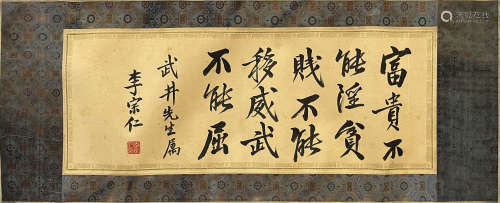 富貴不
能淫貧
賤不能
移威武
不能屈
武丹先生属
李宗仁